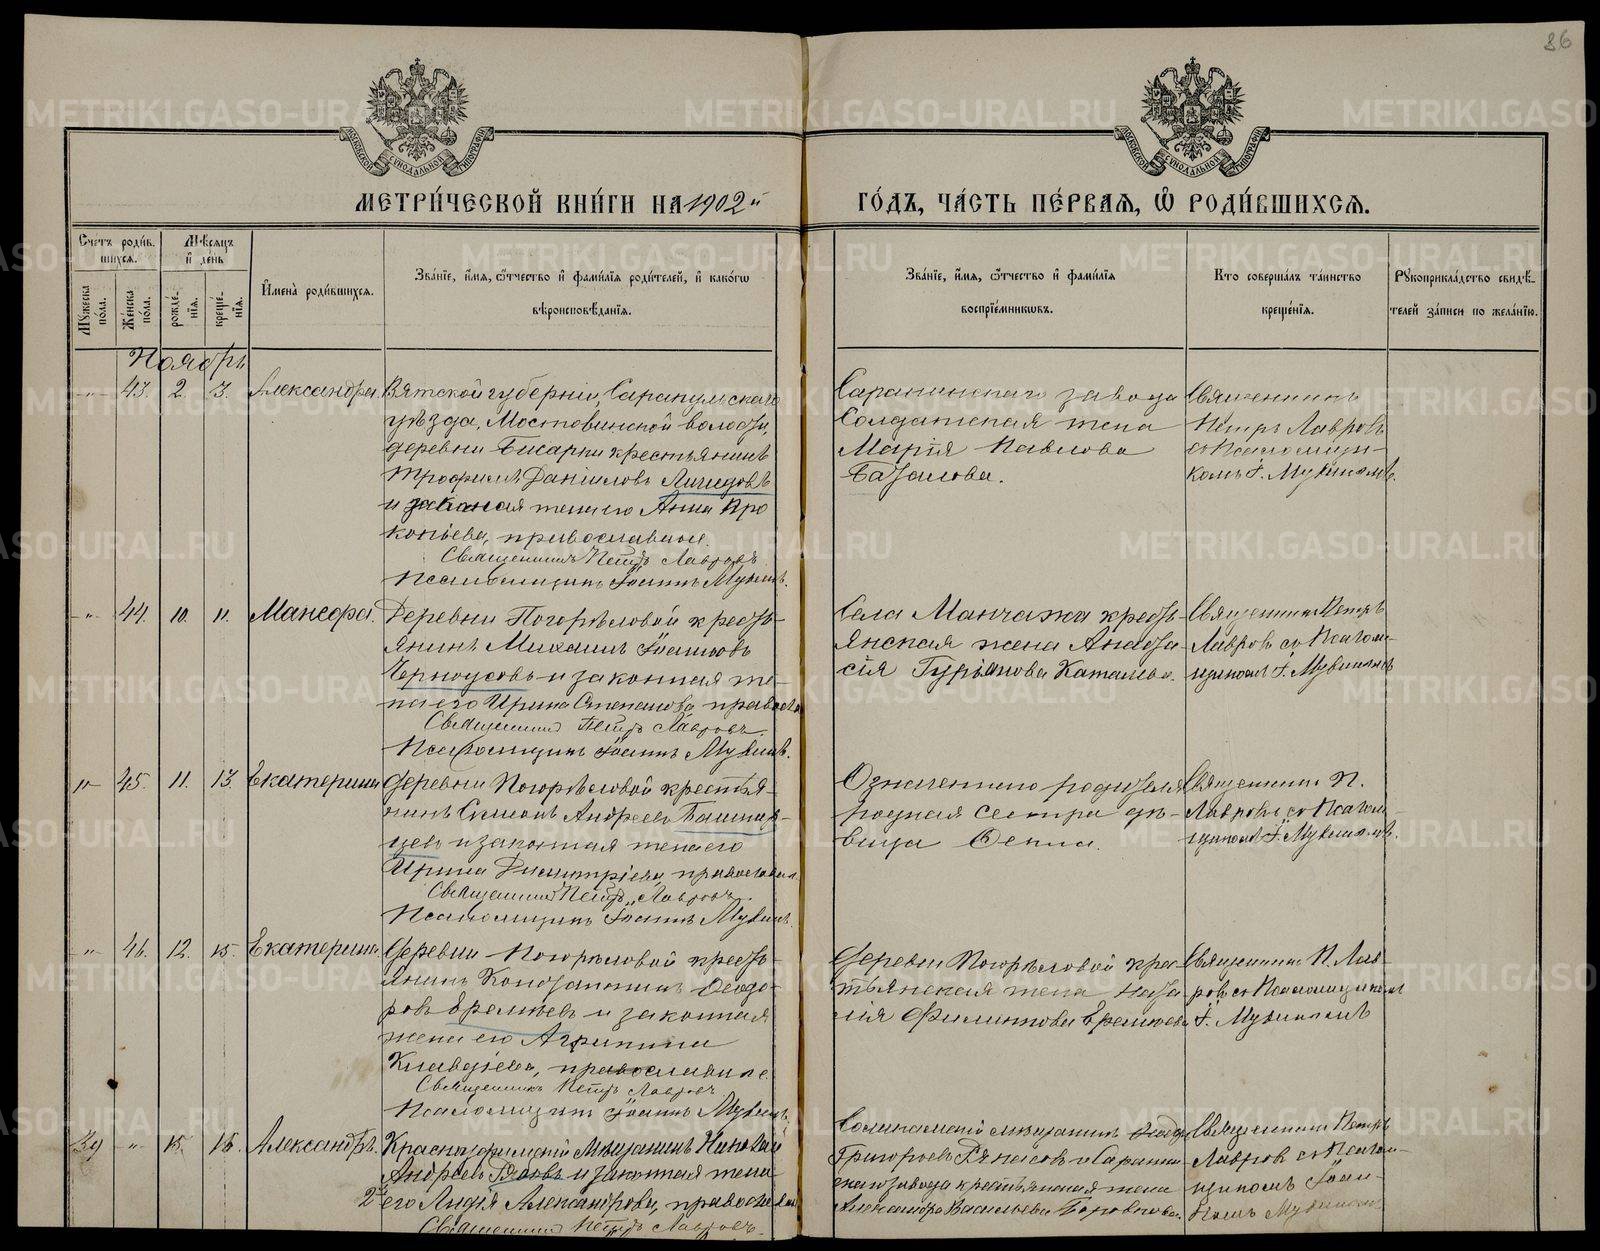 86
МОСКОВСКОЙ СѴНОДАЛЬНОЙ ТИПОГРАФІИ
МОСКОВСКОЙ СѴНОДАЛЬНОЙ ТИПОГРАФІИ
МЕТРИ́ЧЕСКОЙ КНИ́ГИ НА 1902й
ГО́ДЪ, ЧА́СТЬ ПЕ́РВАЯ, Ѡ҆ РОДИ́ВШИХСЯ.
Счетъ роди́в-
шихся.
Му́жеска по́ла.
Же́нска по́ла.
Мѣсяцъ
и҆ де́нь
рожде́-
нія.
креще́-
нія.
И҆мена̀ роди́вшихся.
Зва́нїе, и҆́мя, ѻ҆́тчество и҆ фами́лїя роди́телей, и҆ како́гѡ
вѣроисповѣ́данїя.
Зва́нїе, и҆́мя, ѻ҆́тчество и҆ фами́лїя
воспрїе́мникѡвъ.
Кто̀ соверша́лъ та́инство
креще́нїя.
Рꙋкоприкла́дство свидѣ́-
телей за́писи по жела́нїю.
Ноябрь
-"- 43. 2. 3. Александра.
Вятской губерніи, Сарапульскаго
уѣзда, Мостовинской волости,
деревни Бисарки крестьянинъ
Трофимъ Даніиловъ
и законная жена его Анна Про
копьева, православные.
Священникъ Петръ Лавровъ
Псаломщикъ Іоаннъ Мукинъ.
Саранинскаго завода
Солдатская жена
Марія Павлова
Базалова.
Священникъ
Петръ Лавровъ
съ Псаломщи-
комъ І. Мукинымъ.
-"- 44. 10. 11. Манефа.
Деревни Погорѣловой кресть-
янинъ Михаилъ Іоанновъ
Черноусовъ и законная же-
на его Ирина Степанова, правосл
Священникъ Петръ Лавровъ.
Псаломщикъ Іоаннъ Мукинъ.
Села Манчажи кресть-
янская жена Анаста-
сія Гурьянова Катаева.
Священникъ Петръ
Лавровъ съ Псалом-
щикомъ І. Мукинымъ
-"- 45. 11. 13. Екатерина
Деревни Погорѣловой крестья-
нинъ Симеонъ Андреевъ Башкир-
цевъ и законная жена его
Ирина Димитріева православн.
Священникъ Петръ Лавровъ.
Псаломщикъ Іоаннъ Мукинъ.
Означеннаго родителя
родная сестра дѣ-
вица
Священникъ П.
Лавровъ съ Псалом-
щикомъ І. Мукинымъ.
-"- 46. 12. 15. Екатерина.
Деревни Погорѣловой кресть-
янинъ Константинъ Ѳеодо-
ровъ Еремѣевъ и законная
жена его Агрипина
Клавдіева, православные.
Священникъ Петръ Лавровъ
Псаломщикъ Іоаннъ Мукинъ.
Деревни Погорѣловой кре-
стьянская жена Ната
лія Филиппова Еремѣева
Священникъ П. Лав-
ровъ съ Псаломщикомъ
І. Мукинымъ
39 -"- 15. 16. Александръ.
Красноуфимскій мѣщанинъ Николай
Андреевъ и законная жена
его Лидія Александрова, православн
Священникъ Петръ Лавровъ.
Соликамскій мѣщанинъ
Григорьевъ и Саранин-
скаго завода крестьянская жена
Александра Васильева
Священникъ Петръ
Лавровъ съ Псалом-
щикомъ Іоан-
номъ Мукинымъ